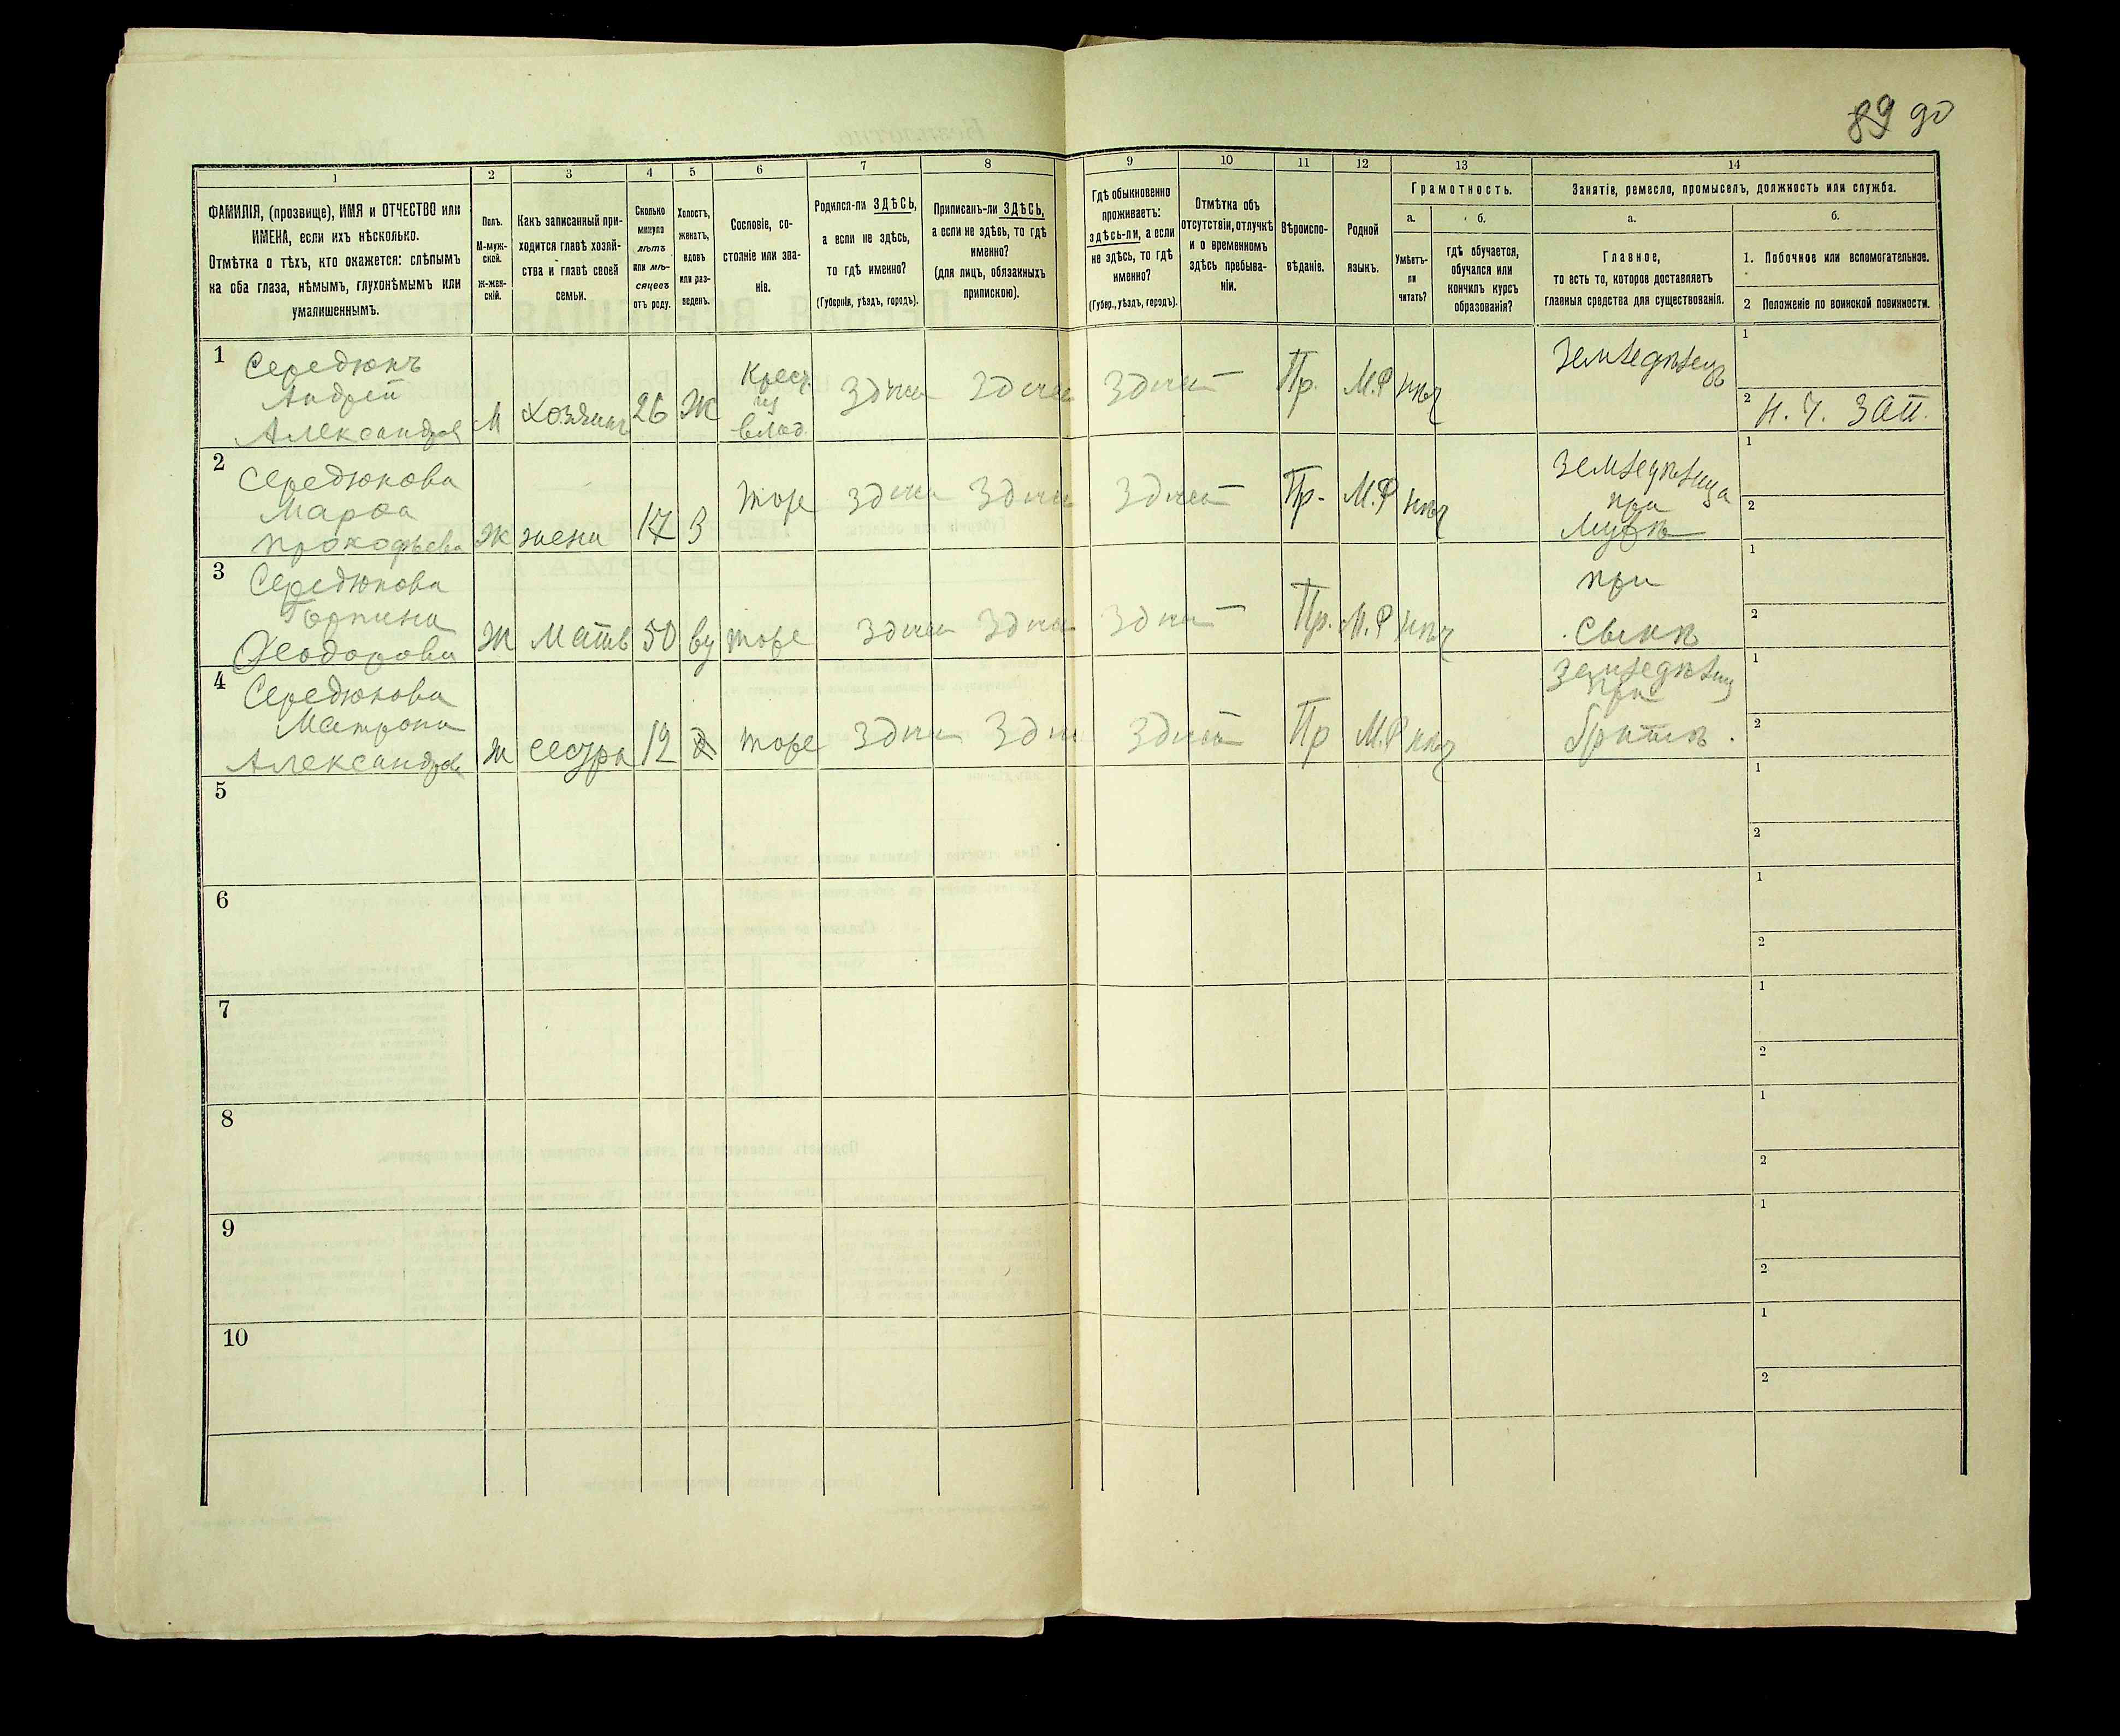 89 90
1 2 3 4 5 6 7 8 9 10 11 12 13 14
ФАМИЛІЯ, (прозвище), ИМЯ и ОТЧЕСТВО или
ИМЕНА, если ихъ нѣсколько.
Отмѣтка о тѣхъ, кто окажется: слѣпымъ
на оба глаза, нѣмымъ, глухонѣмымъ или
умалишеннымъ.
Полъ.
М-муж-
ской.
Ж-жен-
скій.
Какъ записанный при-
ходится главѣ хозяй-
ства и главѣ своей
семьи.
Сколько
минуло
лѣтъ
или мѣ-
сяцевъ
отъ роду.
Холостъ,
женатъ,
вдовъ
или раз-
веденъ.
Сословіе, со-
стояніе или зва-
ніе.
Родился-ли ЗДѢСЬ,
а если не здѣсь,
то гдѣ именно?
(Губернія, уѣздъ, городъ).
Приписанъ-ли ЗДѢСЬ,
а если не здѣсь, то гдѣ
именно?
(для лицъ, обязанныхъ
припискою).
Гдѣ обыкновенно
проживаетъ:
здѣсь-ли, а если
не здѣсь, то гдѣ
именно?
(Губер., уѣздъ, городъ).
Отмѣтка объ
отсутствіи, отлучкѣ
и о временномъ
здѣсь пребыва-
ніи.
Вѣроиспо-
вѣданіе.
Родной
языкъ.
Грамотность.
а.
Умѣетъ-
ли
читать?
б.
гдѣ обучается,
обучался или
кончилъ курсъ
образованія?
Занятіе, ремесло, промыселъ, должность или служба.
а.
Главное,
то есть то, которое доставляетъ
главныя средства для существованія.
б.
1. Побочное или вспомогательное.
2 Положеніе по воинской повинности.
1
Середюкъ
Андрей
Александров
М
хозяинъ
26
Ж
Крест.
из
влад.
Здѣсь
Здѣсь
Здѣсь
Пр.
М.Р
нѣт
земледѣлецъ
1
2 Н. Ч. ЗАП.
2
Середюкова
Марѳа
Прокофьева
Ж
жена
17
З
тоже
здѣсь
Здѣсь
Здѣсь
Пр.
М.Р
нѣт
земледѣлица
при
мужѣ
1
2
3
Середюкова
Горпина
Ѳеодорова
Ж
мать
50
ву
тоже
здѣсь
здѣсь
здѣсь
Пр.
М.Р
нѣт
при
сынѣ
1
2
4
Середюкова
Матрона
Александров
Ж
сестра
12
тоже
здѣсь
здѣсь
здѣсь
Пр
М.Р
нѣт
земледѣлиц
при
братѣ.
1
2
5
1
2
6
1
2
7
1
2
8
1
2
9
1
2
10
1
2